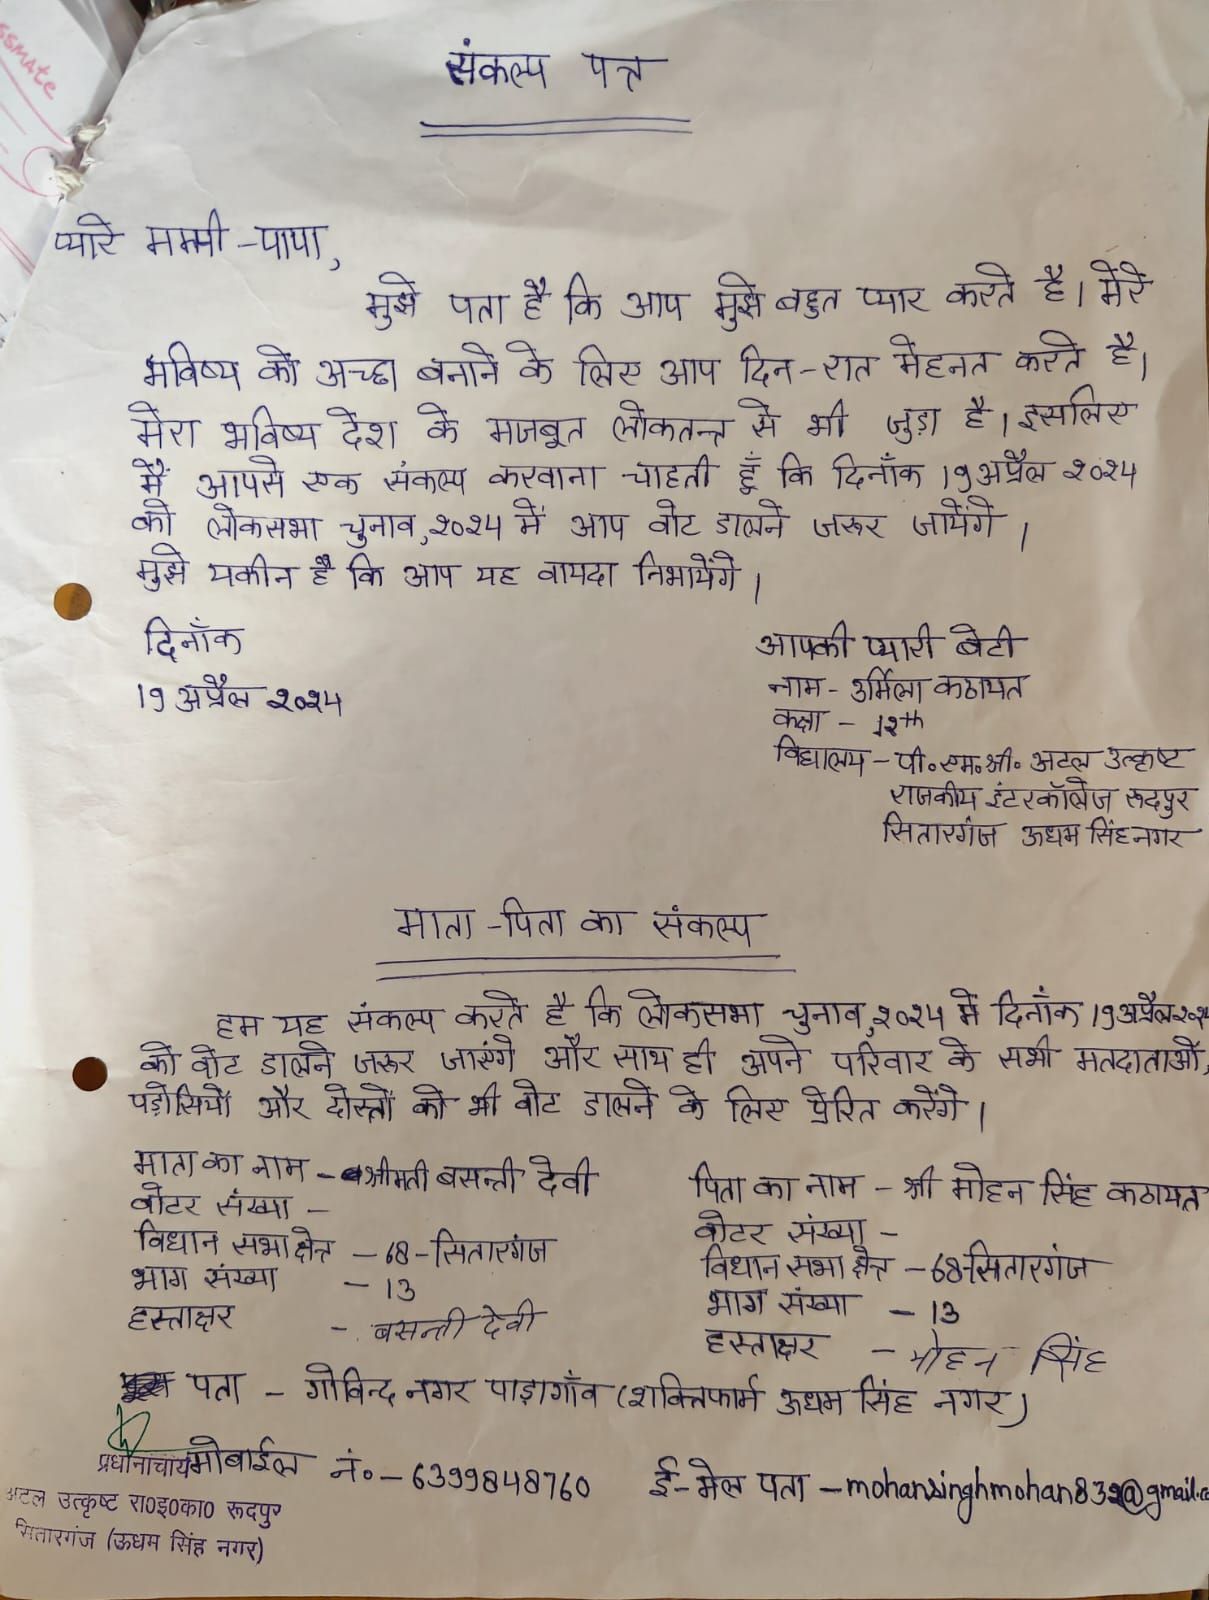 ssmate
संकल्प पत्र
प्यारे मम्मी-पापा,
मुझे पता है कि आप मुझे बहुत प्यार करते है। मेरे
भविष्य को अच्छा बनाने के लिए आप दिन-रात मेहनत करते है।
मेरा भविष्य देश के मजबूत लोकतन्त्र से भी जुड़ा है। इसलिए
मैं आपसे एक संकल्प करवाना चाहती हूँ कि दिनाँक 19 अप्रैल २०२४
को लोकसभा चुनाव,२०२४ में आप वोट डालने जरूर जायेंगे।
मुझे यकीन है कि आप यह वायदा निभायेंगे।
दिनाँक
19 अप्रैल २०२४
आपकी प्यारी बेटी
नाम - उर्मिला कठायत
कक्षा - 12th
विद्यालय - पी०एम०श्री० अटल उत्कृष्ट
राजकीय इंटरकॉलेज रूदपुर
सितारगंज ऊधम सिंह नगर
माता-पिता का संकल्प
हम यह संकल्प करते है कि लोकसभा चुनाव,२०२४ में दिनाँक 19 अप्रैल २०२४
को वोट डालने जरूर जाएंगे और साथ ही अपने परिवार के सभी मतदाताओं,
पड़ोसियों और दोस्तों को भी वोट डालने के लिए प्रेरित करेंगे।
माता का नाम - श्रीमती बसन्ती देवी
वोटर संख्या -
विधान सभा क्षेत्र - 68-सितारगंज
भाग संख्या - 13
हस्ताक्षर - बसन्ती देवी
पिता का नाम - श्री मोहन सिंह कठायत
वोटर संख्या -
विधान सभा क्षेत्र - 68-सितारगंज
भाग संख्या - 13
हस्ताक्षर - मोहन सिंह
पता - गोविन्द नगर पाड़ागाँव (शक्तिफार्म ऊधम सिंह नगर)
मोबाईल नं०- 6399848760 ई-मेल पता - mohansinghmohan832@gmail.co
प्रधानाचार्य
अटल उत्कृष्ट रा०इ०का० रूदपुर
सितारगंज (ऊधम सिंह नगर)